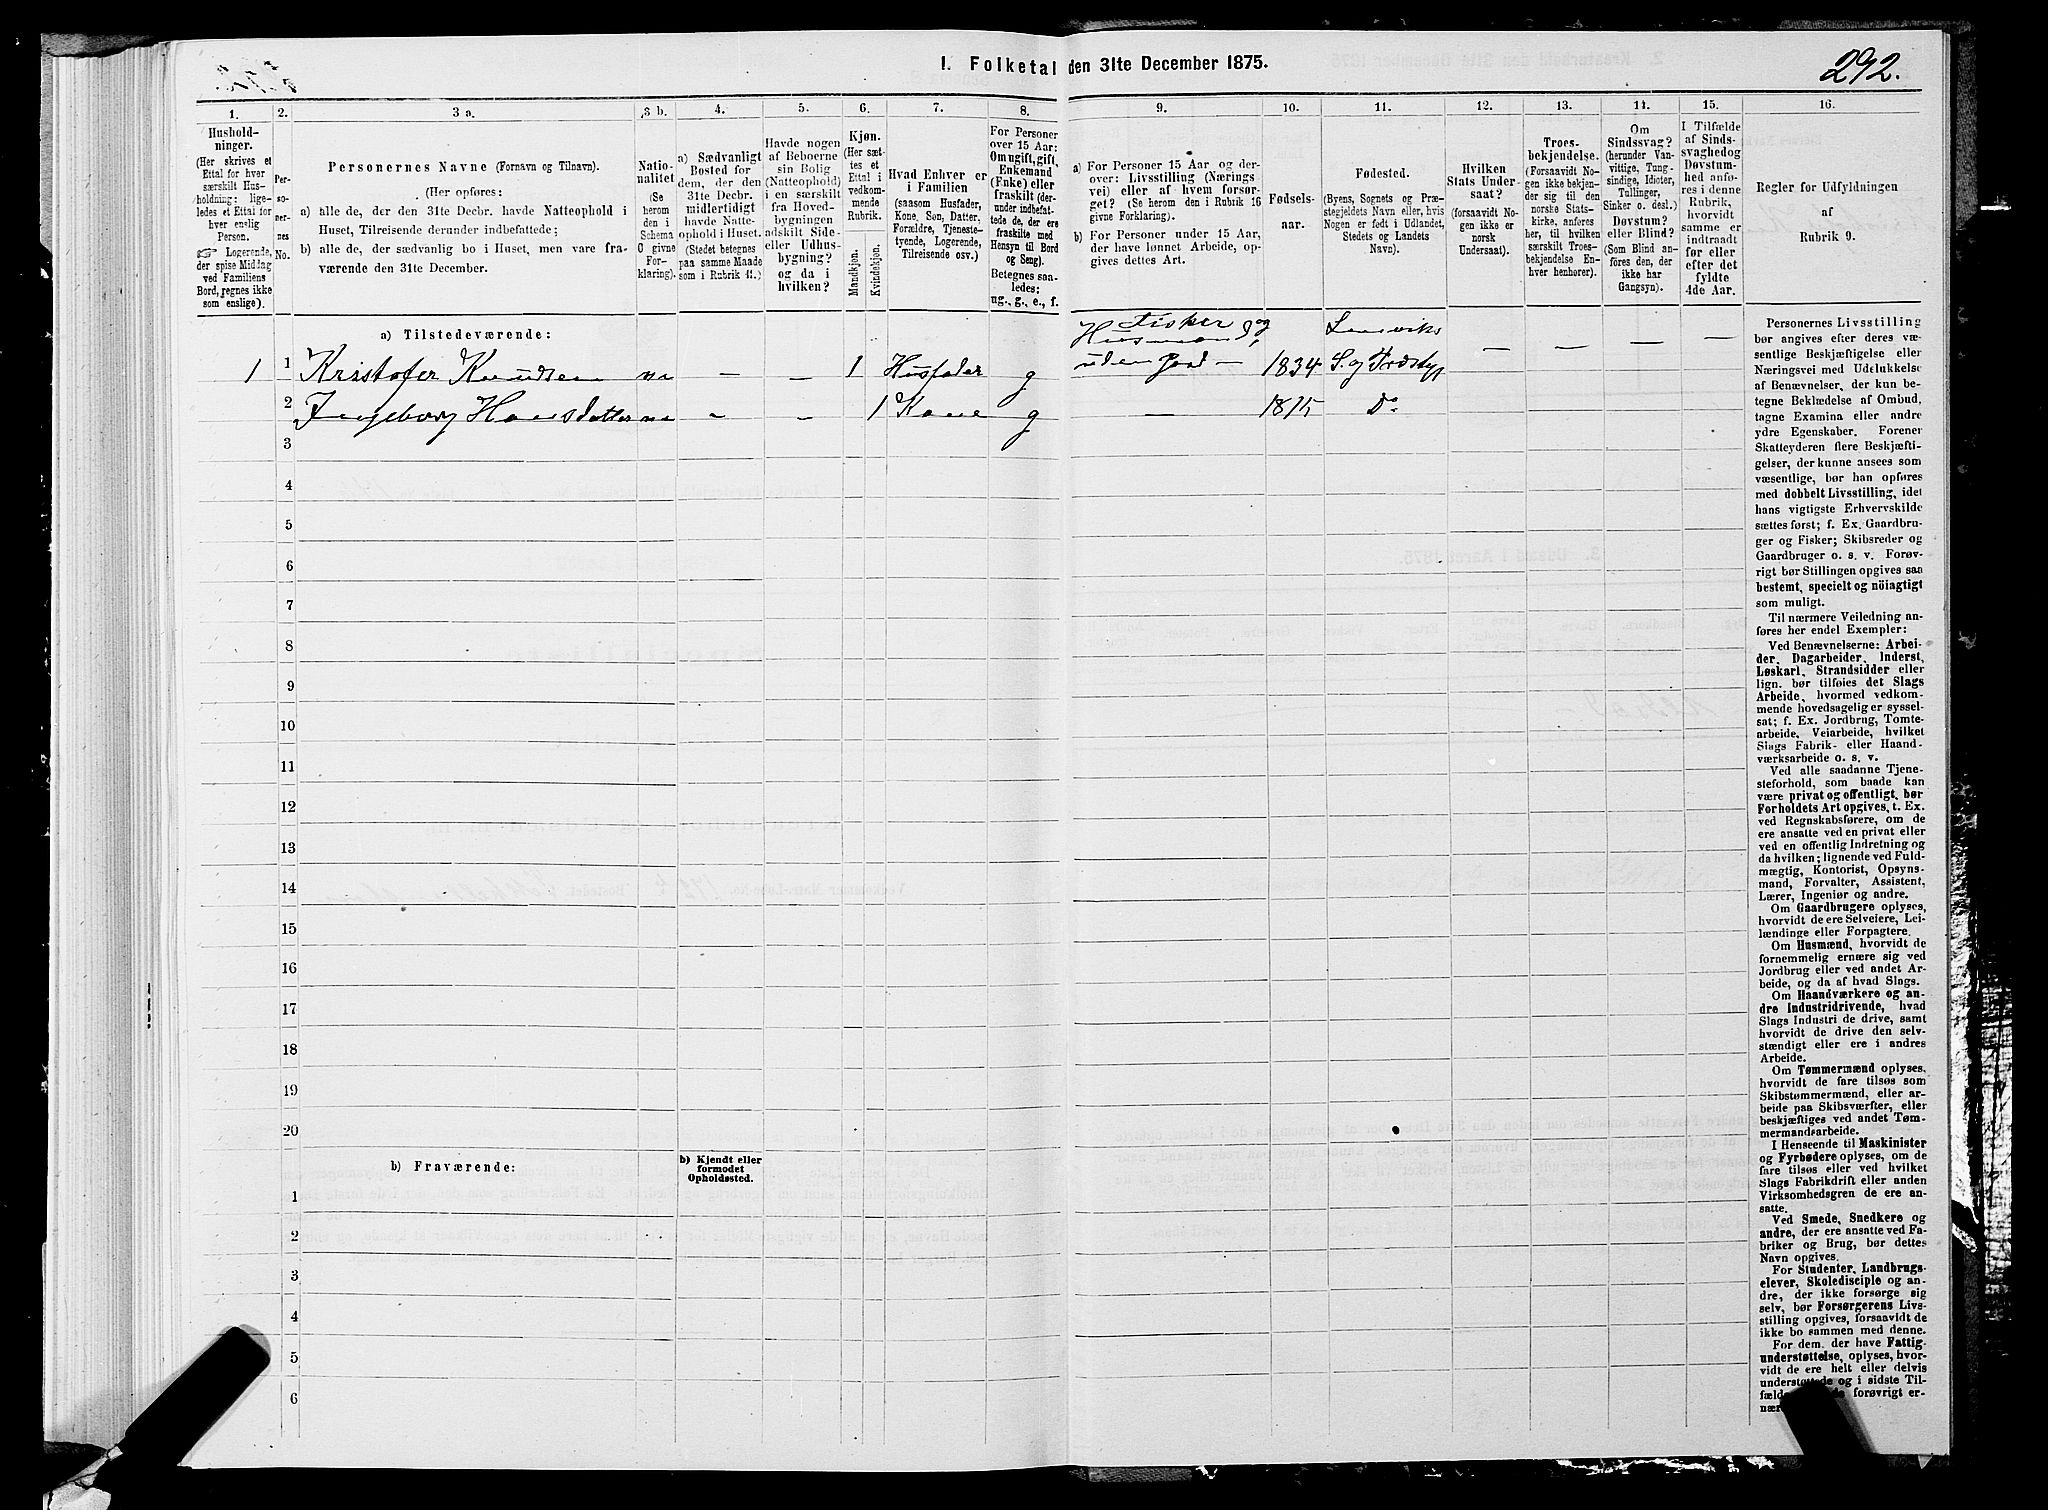 I. Folketal den 31te December 1875.
292.
1.
Hushold-
ninger.
(Her skrives et
Ettal for hver
særskilt Hus-
holdning; lige-
ledes et Ettal for
hver enslig
Person.
☞ Logerende,
der spise Middag
ved Familiens
Bord, regnes ikke
som enslige).
2.
Per-
so-
ner-
nes
No.
3 a.
Personernes Navne (Fornavn og Tilnavn).
(Her opføres:
a) alle de, der den 31te Decbr. havde Natteophold i
Huset, Tilreisende derunder indbefattede;
b) alle de, der sædvanlig bo i Huset, men vare fra-
værende den 31te December.
3 b.
Natio-
nalitet
(Se
herom
den i
Schema
O givne
For-
klaring).
4.
a) Sædvanligt
Bosted for
dem, der den
31te Decbr.
midlertidigt
havde Natte-
ophold i Huset.
(Stedet betegnes
paa samme Maade
som i Rubrik 11.)
5.
Havde nogen
af Beboerne
sin Bolig
(Natteophold)
i en særskilt
fra Hoved-
bygningen
adskilt Side-
eller Udhus-
bygning?
og da i
hvilken?
6.
Kjøn.
(Her sæt-
tes et
Ettal i
vedkom-
mende
Rubrik.
Mandkjøn.
Kvindekjøn.
7.
Hvad Enhver er
i Familien
(saasom Husfader,
Kone, Søn, Datter,
Forældre, Tjeneste-
tyende, Logerende,
Tilreisende osv.)
8.
For Personer
over 15 Aar:
Om ugift, gift,
Enkemand
(Enke) eller
fraskilt (der-
under indbefat-
tede de, der ere
fraskilte med
Hensyn til Bord
og Seng).
Betegnes saa-
ledes:
ug., g., e., f.
9.
a) For Personer 15 Aar og der-
over: Livsstilling (Nærings
vei) eller af hvem forsør-
get? (Se herom den i Rubrik 16
givne Forklaring).
b) For Personer under 15 Aar,
der have lønnet Arbeide, op-
gives dettes Art.
10.
Fødsels-
aar.
11.
Fødested.
(Byens, Sognets og Præ-
stegjeldets Navn eller, hvis
Nogen er født i Udlandet,
Stedets og Landets
Navn).
12.
Hvilken
Stats Under-
saat?
(forsaavidt No-
gen ikke er
norsk
Undersaat).
13.
Troes-
bekjendelse.
(Forsaavidt No-
gen ikke bekjen-
der sig til den
norske Stats-
kirke, anføres
her, til hvilken
særskilt Troes-
bekjendelse En-
hver henhører).
14.
Om
Sindssvag?
(herunder Van-
vittige, Tung-
sindige, Idioter,
Tullinger,
Sinker o. desl.)
Døvstum?
eller Blind?
(Som Blind an-
føres den, der
ikke har
Gangsyn).
15.
I Tilfælde
af Sinds-
svaghed og
Døvstum-
hed anfø-
res i denne
Rubrik,
hvorvidt
samme er
indtraadt
før eller
efter det
fyldte
4de Aar.
16.
Regler for Udfyldningen
af
Rubrik 9.
a) Tilstedeværende:
Fisker og
Husmand
1 1 Kristofer Knudsen n — — 1 Husfader g uden Jord — 1834 S. og Præstgj — — — —
2 Ingeborg Hansdatter n — — 1 Kone g — 1815 Do
3
4
5
6
7
8
9
10
11
12
13
14
15
16
17
18
19
20
b) Fraværende:
b) Kjendt eller
formodet
Opholdssted.
1
2
3
4
5
6
Personernes Livsstilling
bør angives efter deres væ-
sentlige Beskjæftigelse eller
Næringsvei med Udelukkelse
af Benævnelser, der kun be-
tegne Beklædelse af Ombud,
tagne Examina eller andre
ydre Egenskaber. Forener
Skatteyderen flere Beskjæfti-
gelser, der kunne ansees som
væsentlige, bør han opføres
med dobbelt Livsstilling, idet
hans vigtigste Erhvervskilde
sættes først; f. Ex. Gaardbru-
ger og Fisker; Skibsreder og
Gaardbruger o. s. v. Forøv-
rigt bør Stillingen opgives saa
bestemt, specielt og nöiagtigt
som muligt.
Til nærmere Veiledning an-
føres her endel Exempler:
Ved Benævnelserne: Arbei-
der, Dagarbeider, Inderst,
Løskarl, Strandsidder eller
lign. bør tilføies det Slags
Arbeide, hvormed vedkom-
mende hovedsagelig er syssel-
sat; f. Ex. Jordbrug, Tomte-
arbeide, Veiarbeide, hvilket
Slags Fabrik- eller Haand-
værksarbeide o. s. v.
Ved alle saadanne Tjene-
steforhold, som baade kan
være privat og offentligt, bør
Forholdets Art opgives, t. Ex.
ved Regnskabsførere, om de
ere ansatte ved en privat eller
ved en offentlig Indretning og
da hvilken; lignende ved Fuld-
mægtig, Kontorist, Opsyns-
mand, Forvalter, Assistent,
Lærer, Ingeniør og andre.
Om Gaardbrugere oplyses,
hvorvidt de ere Selveiere, Lei-
lændinge eller Forpagtere.
Om Husmænd, hvorvidt de
fornemmelig ernære sig ved
Jordbrug eller ved andet Ar-
beide, og da af hvad Slags.
Om Haandværkere og an-
dre Industridrivende, hvad
Slags Industri de drive, samt
hvorvidt de drive den selv-
stændigt eller ere i andres
Arbeide.
Om Tømmermænd oplyses,
hvorvidt de fare tilsøs som
Skibstømmermænd, eller ar-
beide paa Skibsværfter, eller
beskjæftiges ved andet Tøm-
mermandsarbeide.
I Henseende til Maskinister
og Fyrbødere oplyses, om de
fare tilsøs eller ved hvilket
Slags Fabrikdrift eller anden
Virksomhedsgren de ere an-
satte.
Ved Smede, Snedkere og
andre, der ere ansatte ved Fa-
briker og Brug, bør dettes
Navn opgives.
For Studenter, Landbrugs-
elever, Skoledisciple og an-
dre, der ikke forsørge sig
selv, bør Forsørgerens Livs-
stilling opgives, forsaavidt de
ikke bo sammen med denne.
For dem, der have Fattig-
understøttelse, oplyses, hvor-
vidt de ere helt eller delvis
understøttede og i sidste Til-
fælde forøvrigt er-
nær